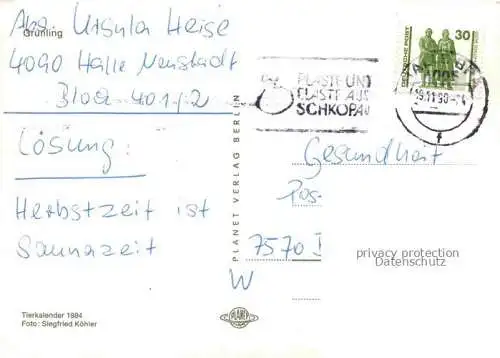 Grünling
Abs. Ursula Heise
4090 Halle Neustadt
Bloa-401/2
Lösung:
Herbstzeit ist
Saunazeit
Tierkalender 1984
Foto: Siegfried Köhler
PLANET VERLAG BERLIN
PLANET
PLASTE UND
ELASTE AUS
SCHKOPAU
DEUTSCHE POST
30
Gesundheit
Pos
7570
W
privacy protection
Datenschutz